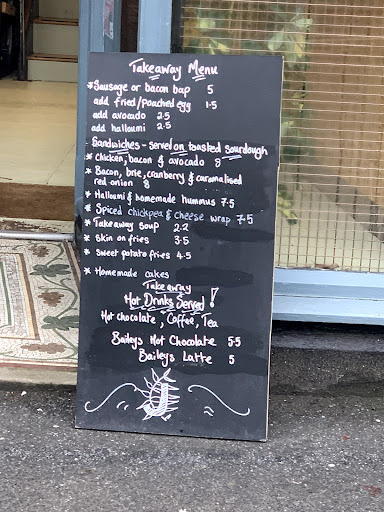 Takeaway Menu
*Sausage or bacon bap 5
add fried/poached egg 1.5
add avocado 2.5
add halloumi 2.5
Sandwiches - served on toasted sourdough
* Chicken, bacon & avocado 8
* Bacon, brie, cranberry & caramalised
red onion 8
* Halloumi & homemade hummus 7.5
* Spiced chickpea & cheese wrap 7.5
* Takeaway soup 2.2
* Skin on fries 3.5
* Sweet potato fries 4.5
* Homemade cakes
Takeaway
Hot Drinks Served!
Hot chocolate, Coffee, Tea
Baileys Hot Chocolate 5.5
Baileys Latte 5